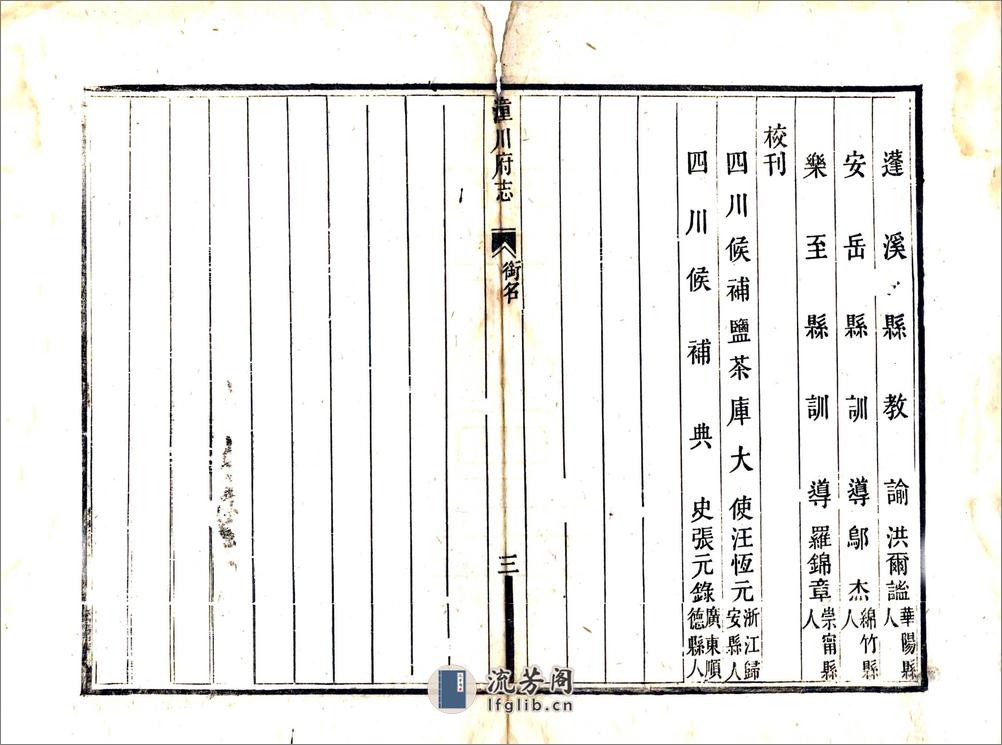 蓬溪縣教諭洪爾謐華陽縣人
安岳縣訓導鄔杰綿竹縣人
樂至縣訓導羅錦章崇甯縣人
校刊
四川候補鹽茶庫大使汪恆元浙江歸安縣人
四川候補典史張元錄廣東順德縣人
潼川府志
銜名
三
流芳阁
lfglib.cn